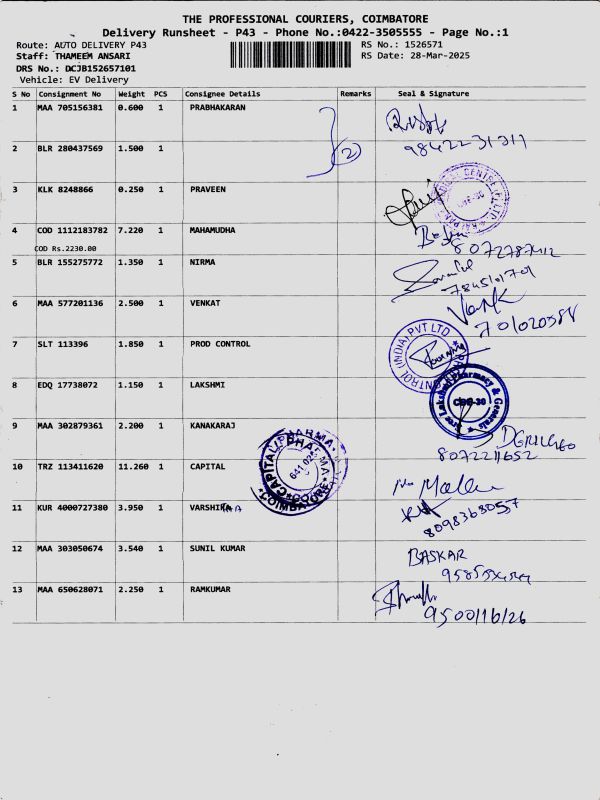 THE PROFESSIONAL COURIERS, COIMBATORE
Delivery Runsheet - P43 - Phone No.:0422-3505555 - Page No.:1
Route: AUTO DELIVERY P43
RS No.: 1526571
Staff: THAMEEM ANSARI
RS Date: 28-Mar-2025
DRS No.: DCJB152657101
Vehicle: EV Delivery
S No Consignment No Weight PCS Consignee Details Remarks Seal & Signature
1 MAA 705156381 0.600 1 PRABHAKARAN
2 BLR 280437569 1.500 1
2
3 KLK 8248866 0.250 1 PRAVEEN
4 COD 1112183782 7.220 1 MAHAMUDHA
COD Rs.2230.00
5 BLR 155275772 1.350 1 NIRMA
6 MAA 577201136 2.500 1 VENKAT
7 SLT 113396 1.850 1 PROD CONTROL
CONTROL (INDIA) PVT LTD
8 EDQ 17738072 1.150 1 LAKSHMI
Sree Lakshmi Pharmacy & Generals
CBE-30
9 MAA 302879361 2.200 1 KANAKARAJ
8072211652
10 TRZ 113411620 11.260 1 CAPITAL
CAPITAL PHARMA
COIMBATORE
11 KUR 4000727380 3.950 1 VARSHIKAA
8098363057
12 MAA 303050674 3.540 1 SUNIL KUMAR
BASKAR
13 MAA 650628071 2.250 1 RAMKUMAR
9500116126